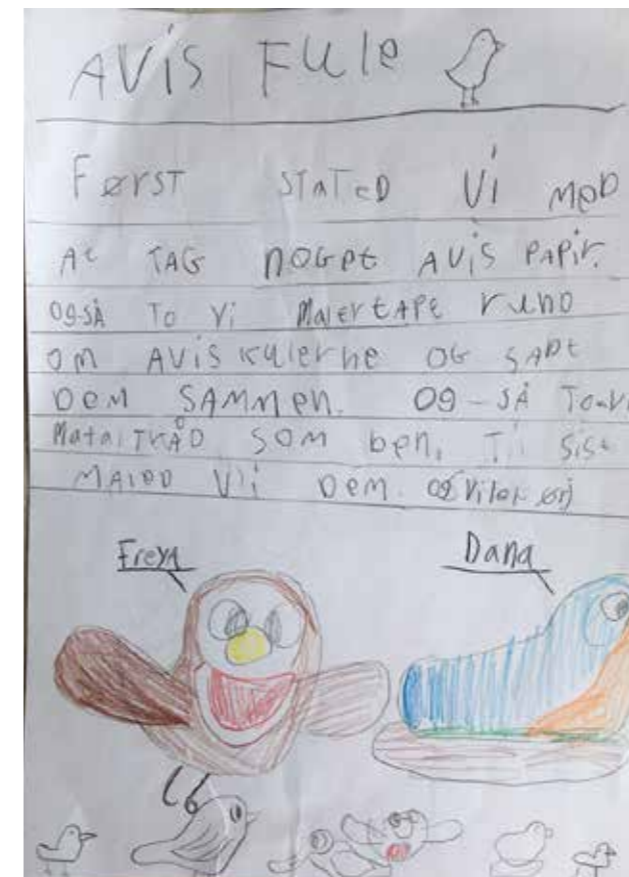 AVIS FULE
FØRST STATED Vi MED
At TAG NOGET AVIS PAPIR.
OG-SÅ TO Vi MALERTAPE RUND
OM AVISKULERNE OG SADT
DEM SAMMEN. OG-SÅ TO-Vi
MATALTRÅD SOM beN. Til SiST
MALED Vi DEM. OG Vi
Freya
Dana